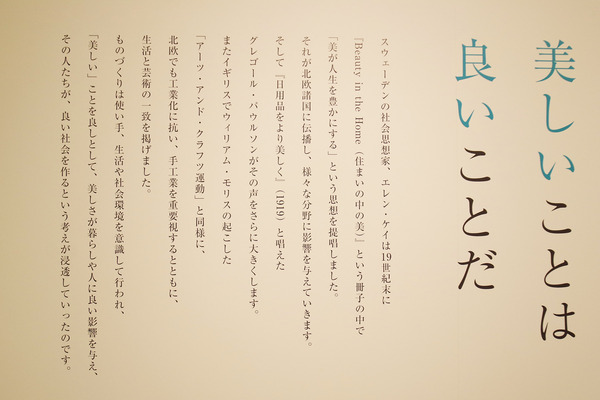 美しいことは
良いことだ
スウェーデンの社会思想家、エレン・ケイは19世紀末に
『Beauty in the Home（住まいの中の美）』という冊子の中で
「美が人生を豊かにする」という思想を提唱しました。
それが北欧諸国に伝播し、様々な分野に影響を与えていきます。
そして『日用品をより美しく』（1919）と唱えた
グレゴール・パウルソンがその声をさらに大きくします。
またイギリスでウィリアム・モリスの起こした
「アーツ・アンド・クラフツ運動」と同様に、
北欧でも工業化に抗い、手工業を重要視するとともに、
生活と芸術の一致を掲げました。
ものづくりは使い手、生活や社会環境を意識して行われ、
「美しい」ことを良しとして、美しさが暮らしや人に良い影響を与え、
その人たちが、良い社会を作るという考えが浸透していったのです。